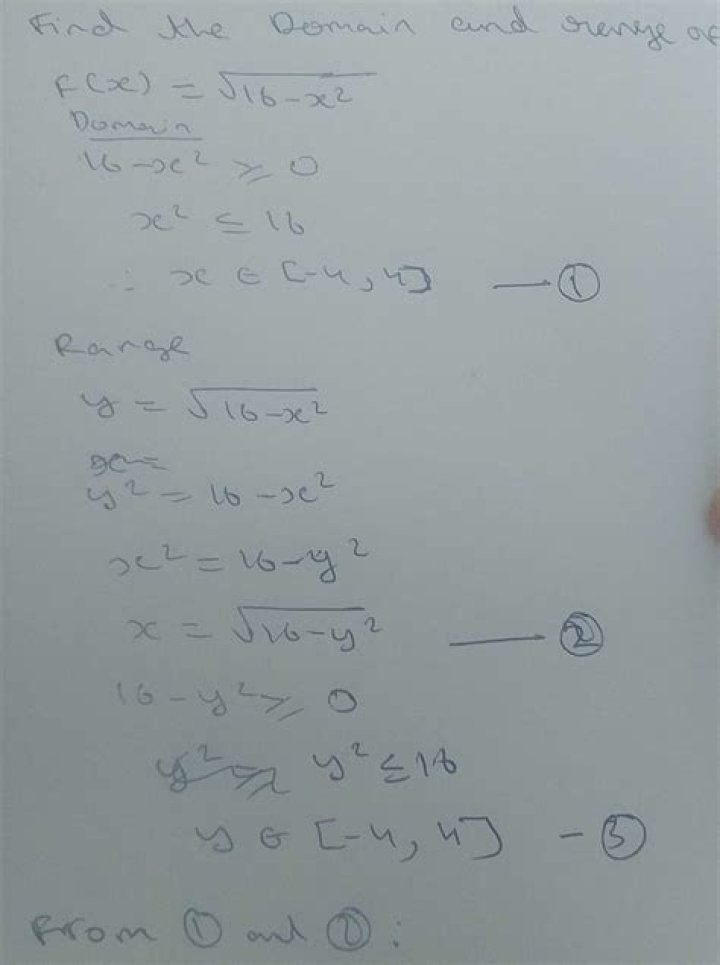 Find the Domain and range of
F(x) = √16-x²
Domain
16-x² ≥ 0
x² ≤ 16
∴ x ∈ [-4, 4] — ①
Range
y = √16-x²
x=
y² = 16 - x²
x² = 16-y²
x = √16-y² — ②
16 - y² ≥ 0
y² ≤ 16
y ∈ [-4, 4] - ③
From ① and ② :